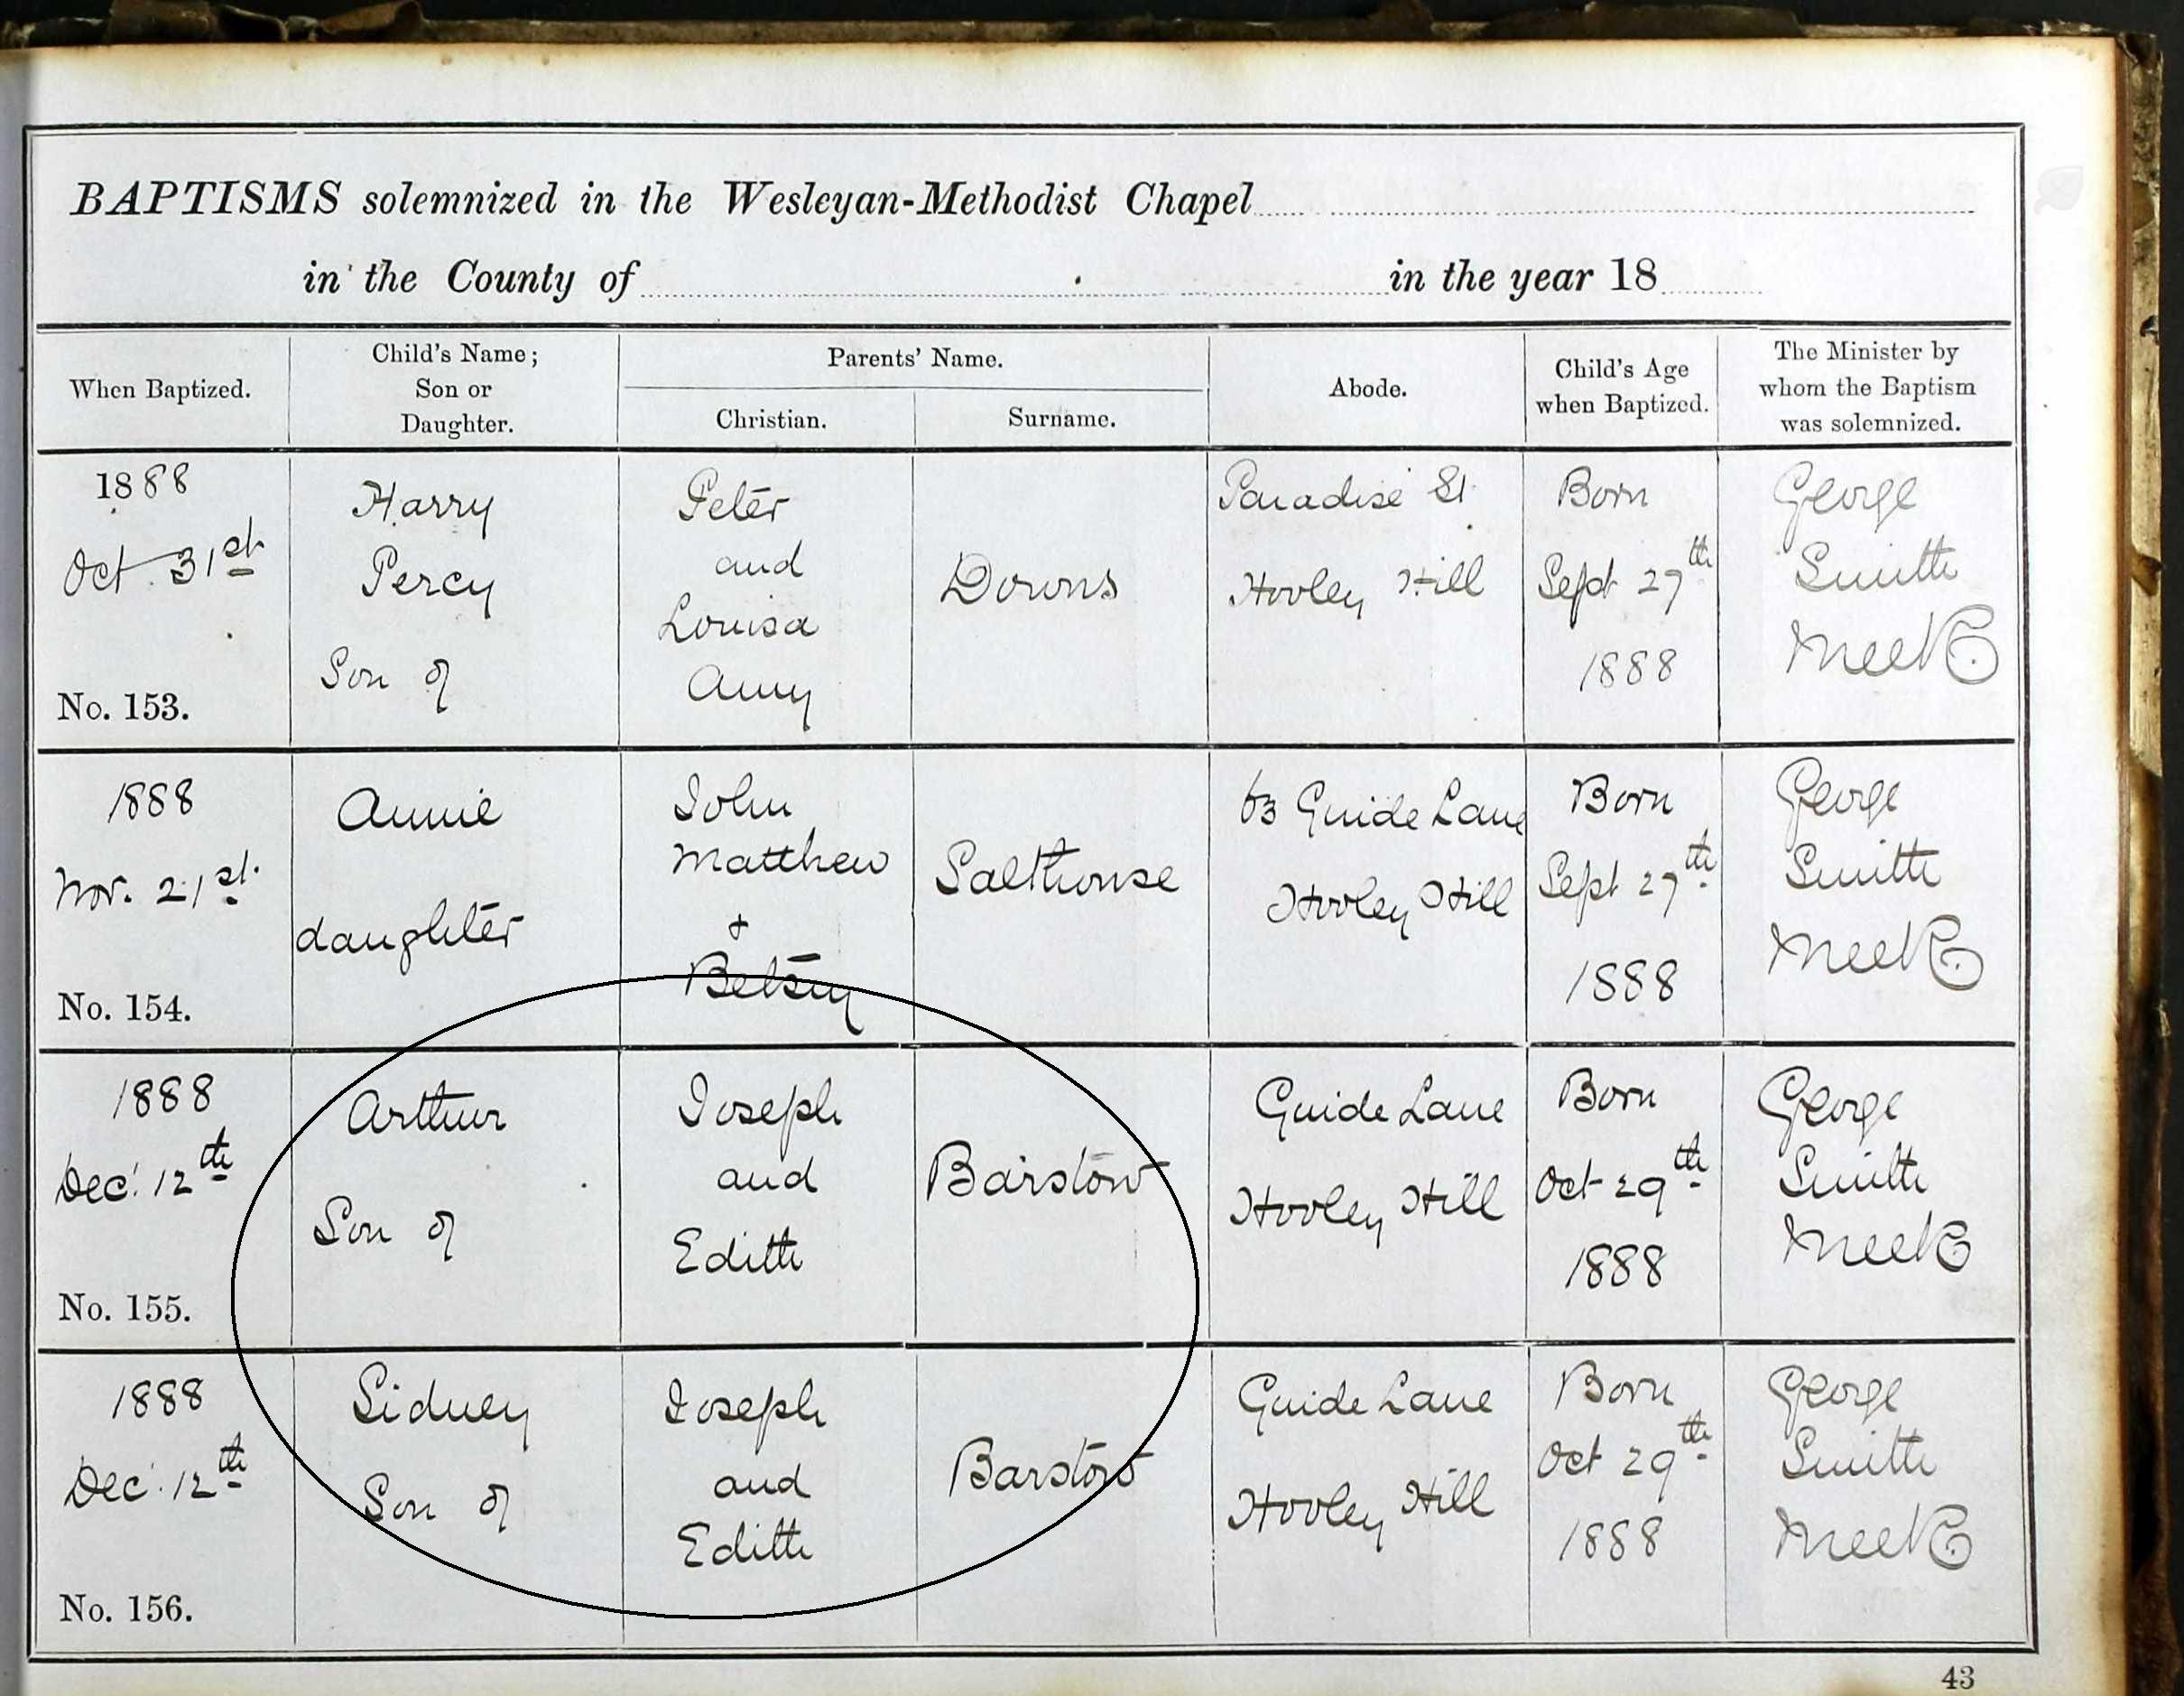 BAPTISMS solemnized in the Wesleyan-Methodist Chapel
in the County of in the year 18
When Baptized.
Child's Name;
Son or
Daughter.
Parents' Name.
Christian.
Surname.
Abode.
Child's Age
when Baptized.
The Minister by
whom the Baptism
was solemnized.
1888
Oct 31st
No. 153.
Harry
Percy
Son of
Peter
and
Louisa
Amy
Downs
Paradise St
Hooley Hill
Born
Sept 27th
1888
George
Smith
Meek
1888
Nov. 21st.
No. 154.
Annie
daughter
John
Matthew
+
Betsy
Salthouse
63 Guide Lane
Hooley Hill
Born
Sept 27th
1888
George
Smith
Meek
1888
Dec. 12th
No. 155.
Arthur
Son of
Joseph
and
Edith
Barstow
Guide Lane
Hooley Hill
Born
Oct 29th
1888
George
Smith
Meek
1888
Dec. 12th
No. 156.
Sidney
Son of
Joseph
and
Edith
Barstow
Guide Lane
Hooley Hill
Born
Oct 29th
1888
George
Smith
Meek
43